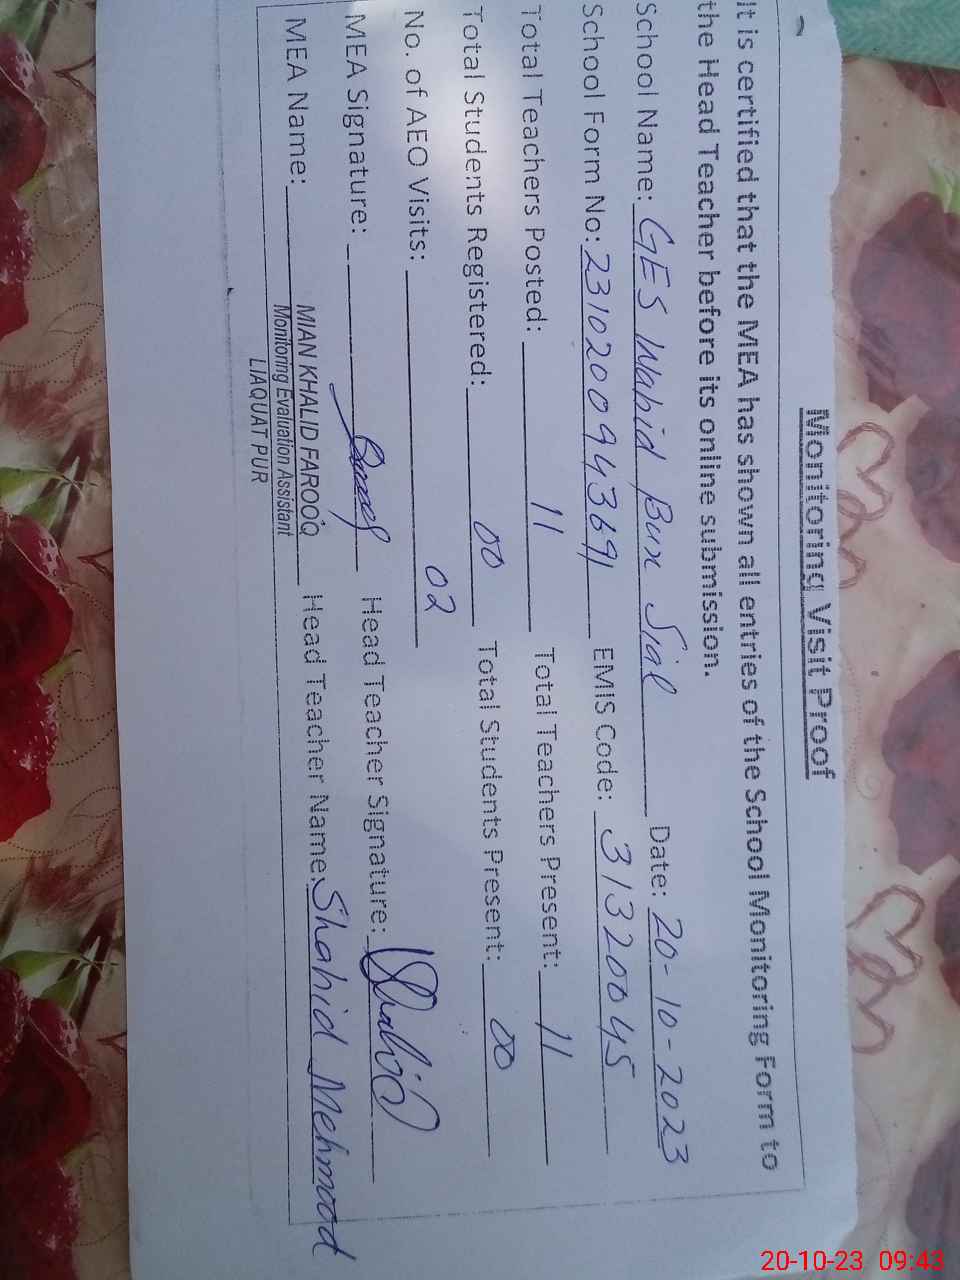 Monitoring Visit Proof
It is certified that the MEA has shown all entries of the School Monitoring Form to
the Head Teacher before its online submission.
School Name: GES Wahid Bux Sial Date: 20-10-2023
School Form No: 23102009 4369 EMIS Code: 31320045
Total Teachers Posted: 11 Total Teachers Present: 11
Total Students Registered: 00 Total Students Present: 00
No. of AEO Visits: 02
MEA Signature: Head Teacher Signature: Shahid
MEA Name: MIAN KHALID FAROOQ Head Teacher Name: Shahid Mehmood
Monitoring Evaluation Assistant
LIAQUAT PUR
20-10-23 09:43